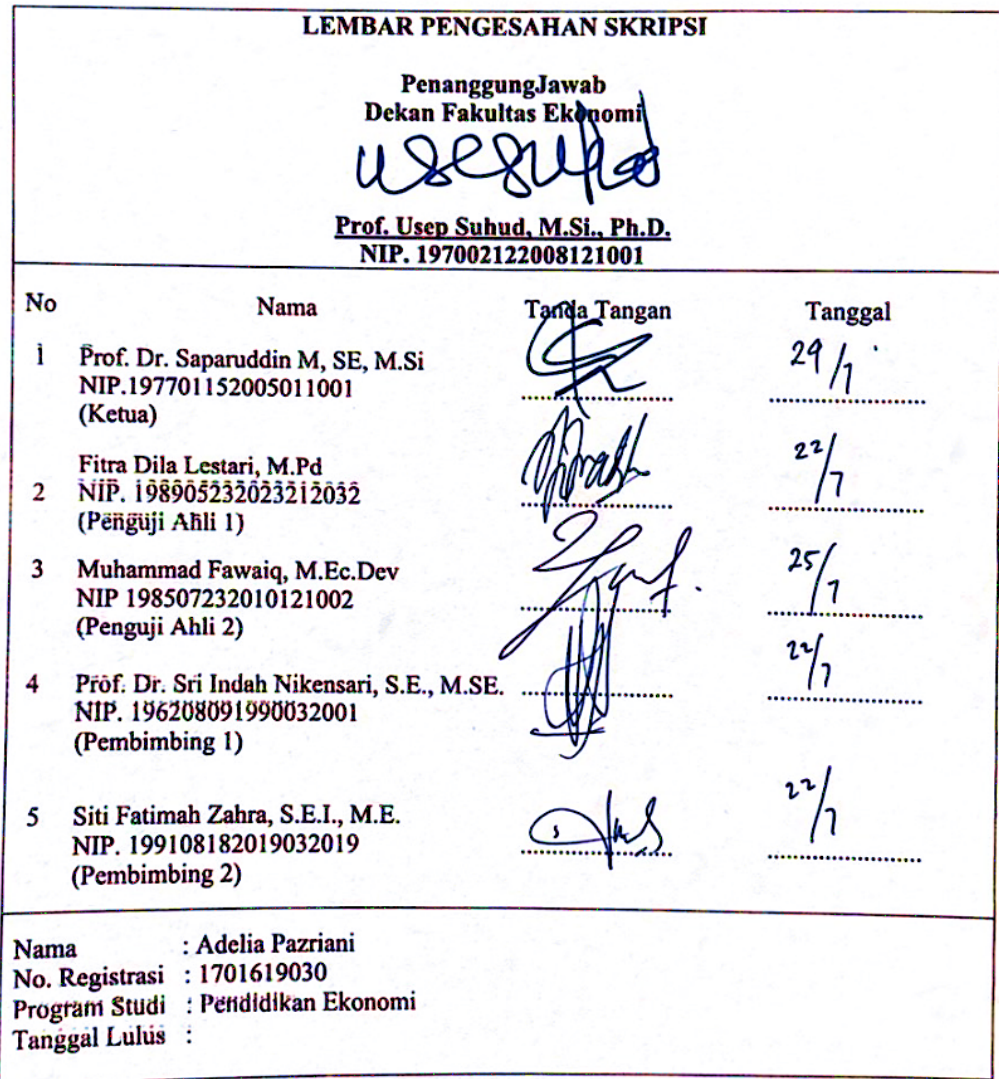 LEMBAR PENGESAHAN SKRIPSI
PenanggungJawab
Dekan Fakultas Ekonomi
Prof. Usep Suhud, M.Si., Ph.D.
NIP. 197002122008121001
No Nama Tanda Tangan Tanggal
1 Prof. Dr. Saparuddin M, SE, M.Si 29/7
NIP.197701152005011001
(Ketua)
Fitra Dila Lestari, M.Pd 22/7
2 NIP. 198905232023212032
(Penguji Ahli 1)
3 Muhammad Fawaiq, M.Ec.Dev 25/7
NIP 198507232010121002
(Penguji Ahli 2)
4 Prof. Dr. Sri Indah Nikensari, S.E., M.SE. 22/7
NIP. 196208091990032001
(Pembimbing 1)
5 Siti Fatimah Zahra, S.E.I., M.E. 22/7
NIP. 199108182019032019
(Pembimbing 2)
Nama : Adelia Pazriani
No. Registrasi : 1701619030
Program Studi : Pendidikan Ekonomi
Tanggal Lulus :